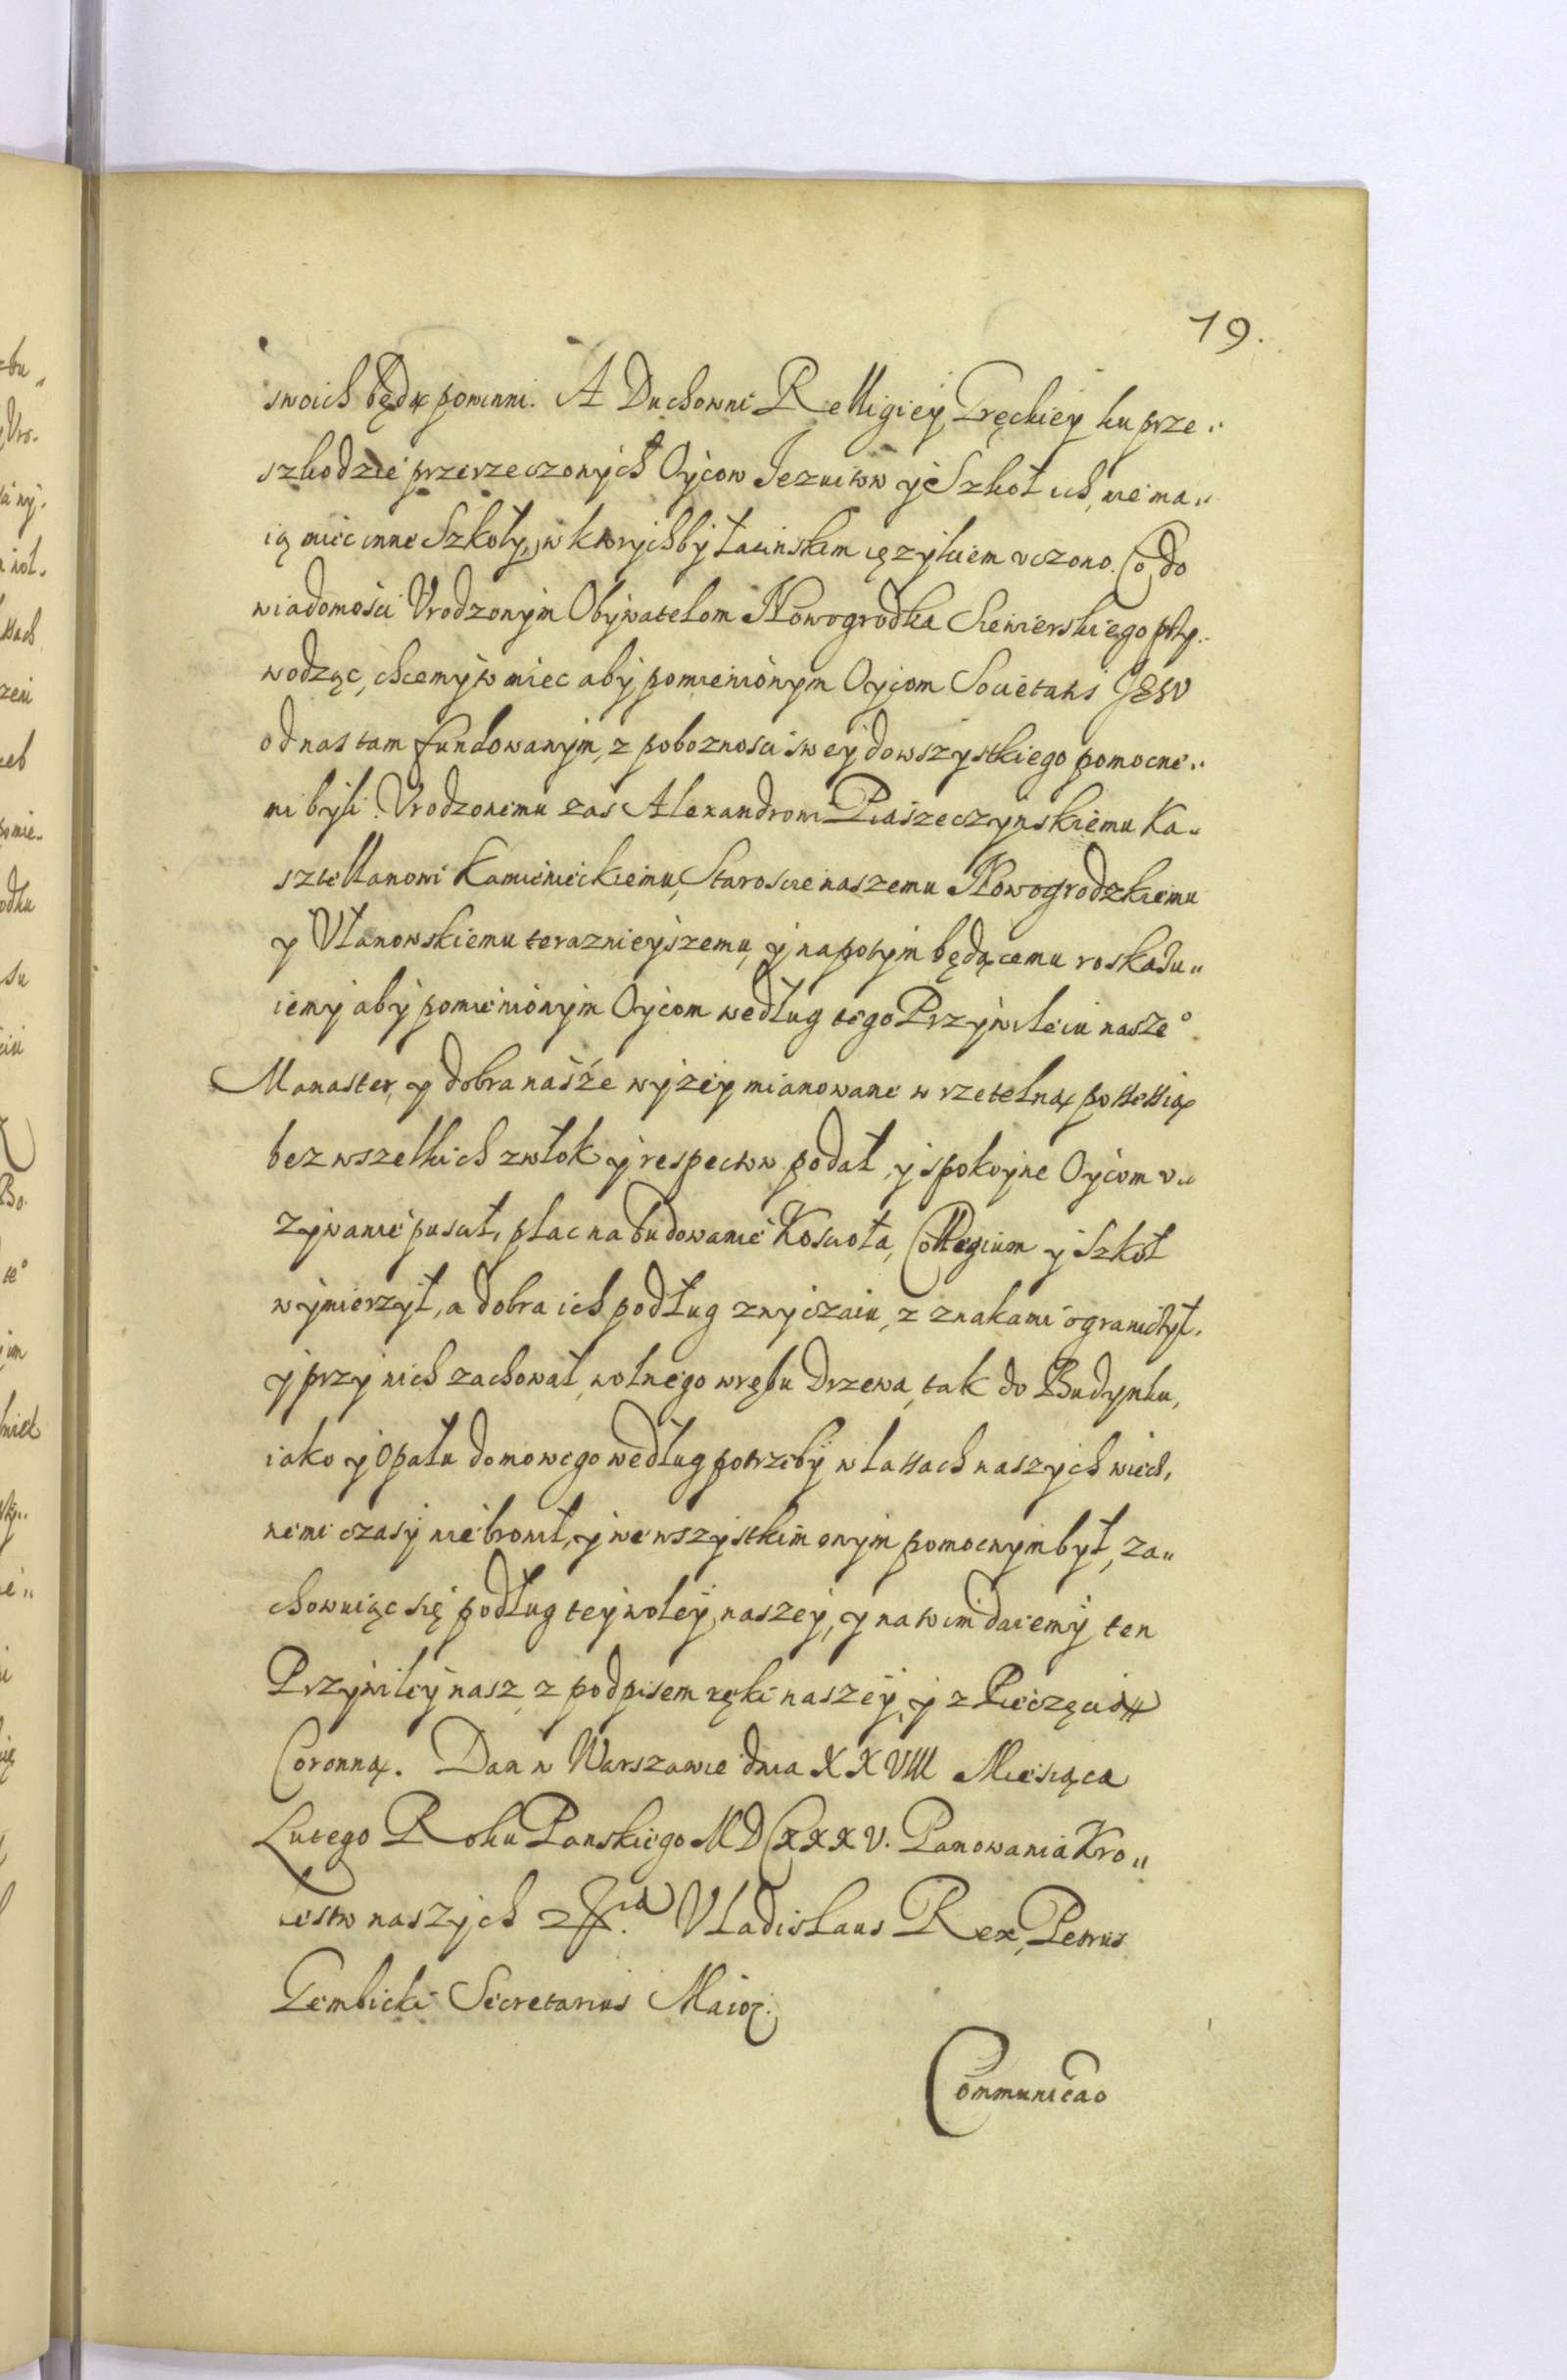 19.
swoich będą powinni. A Duchowni Relligiey Gręckiey ku prze„
szkodzie przerzeczonych Oycow Jezuitow y Szkoł ich, nie ma„
ią miec inne Szkoły, w ktorychby łacinskim ięzykiem vczono. Co do
wiadomosci Vrodzonym Obywatelom Nowogrodka Siewierskiego przy„
wodząc, chcemy to miec aby pomienionym Oycom Societatis JESV
od nas tam fundowanym, z poboznosci swey do wszystkiego pomocne„
mi byli. Vrodzonemu zas Alexandrowi Piaszeczynskiemu Ka„
sztellanowi Kamienieckiemu, Staroscie naszemu Nowogrodzkiemu
y Vłanowskiemu teraznieyszemu, y napotym będącemu roskazu„
iemy aby pomienionym Oycom według tego Przywileiu nasze°
Manaster, y dobra nasze wyzey mianowane w rzetelną possessią
bez wszelkich zwłok y respectow podał, y spokoyne Oycom v„
zywanie puscił, plac na budowanie Koscioła, Collegium y Szkoł
wymierzył, a dobra ich podług zwyczaiu, z znakami ograniczył,
y przy nich zachował, wolnego wrębu Drzewa, tak do Budynku,
iako y Opału domowego według potrzeby w lassach naszych wiecz,
nemi czasy nie bronił, y we wszystkim onym pomocnym był, za„
chowuiąc się podług tey woley naszey, y na to im daiemy ten
Przywiley nasz, z podpisem ręki naszey, y z Pieczęcią
Coronną. Dan w Warszawie dnia XXVIII Miesiąca
Lutego Roku Panskiego MDCXXXV. Panowania Kro„
lestw naszych Vladislaus Rex, Petrus
Gembicki Secretarius Maior.
Communicao